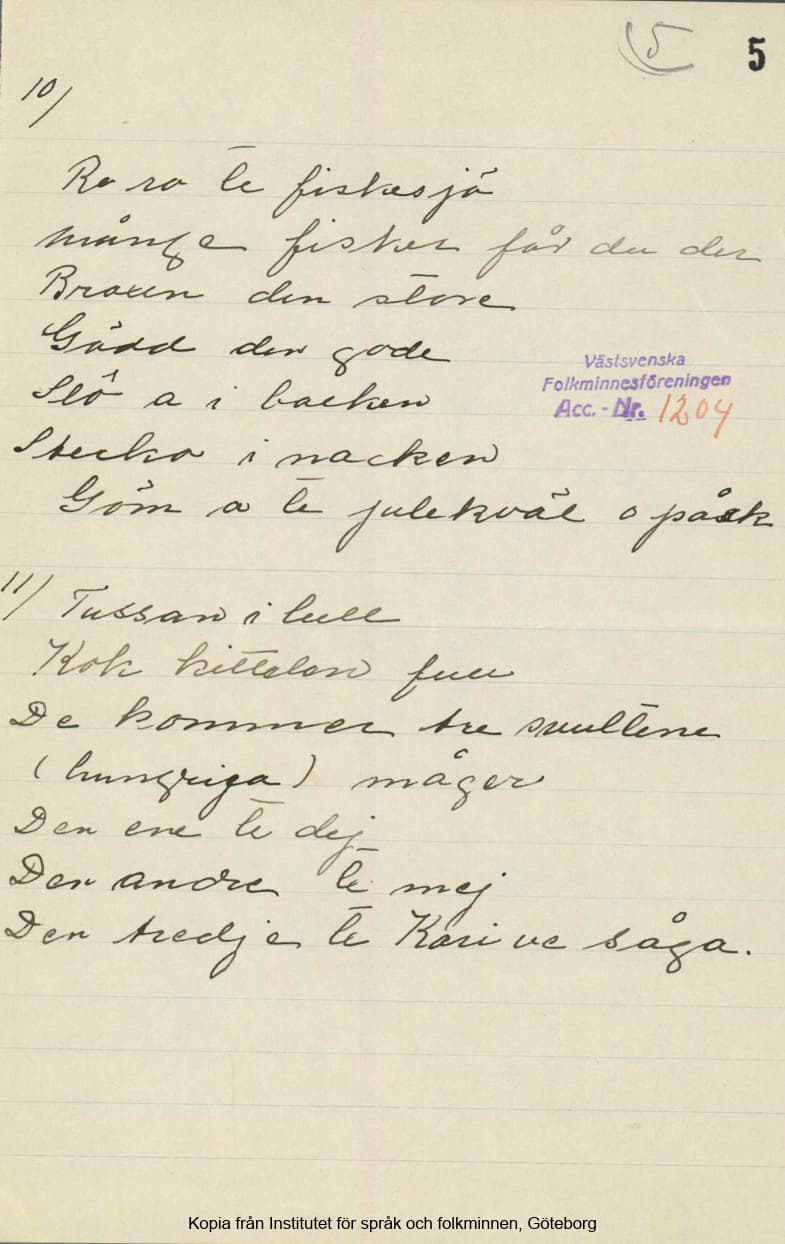 5
5
10/
Ro ro te fiskesjö
många fisker får du der
Braxen den store
Gädd den gode
Västsvenska
Folkminnesföreningen
Acc. - Nr. 1204
Slô a i backen
Stecka i nacken
Göm a te julekväl o påsk
11/ Tussan i lull
Kok kittelen full
De kommer tre svultene
(hungriga) måger
Den ene te dej
Den andre te mej
Den tredje te Kari ve såga.
Kopia från Institutet för språk och folkminnen, Göteborg